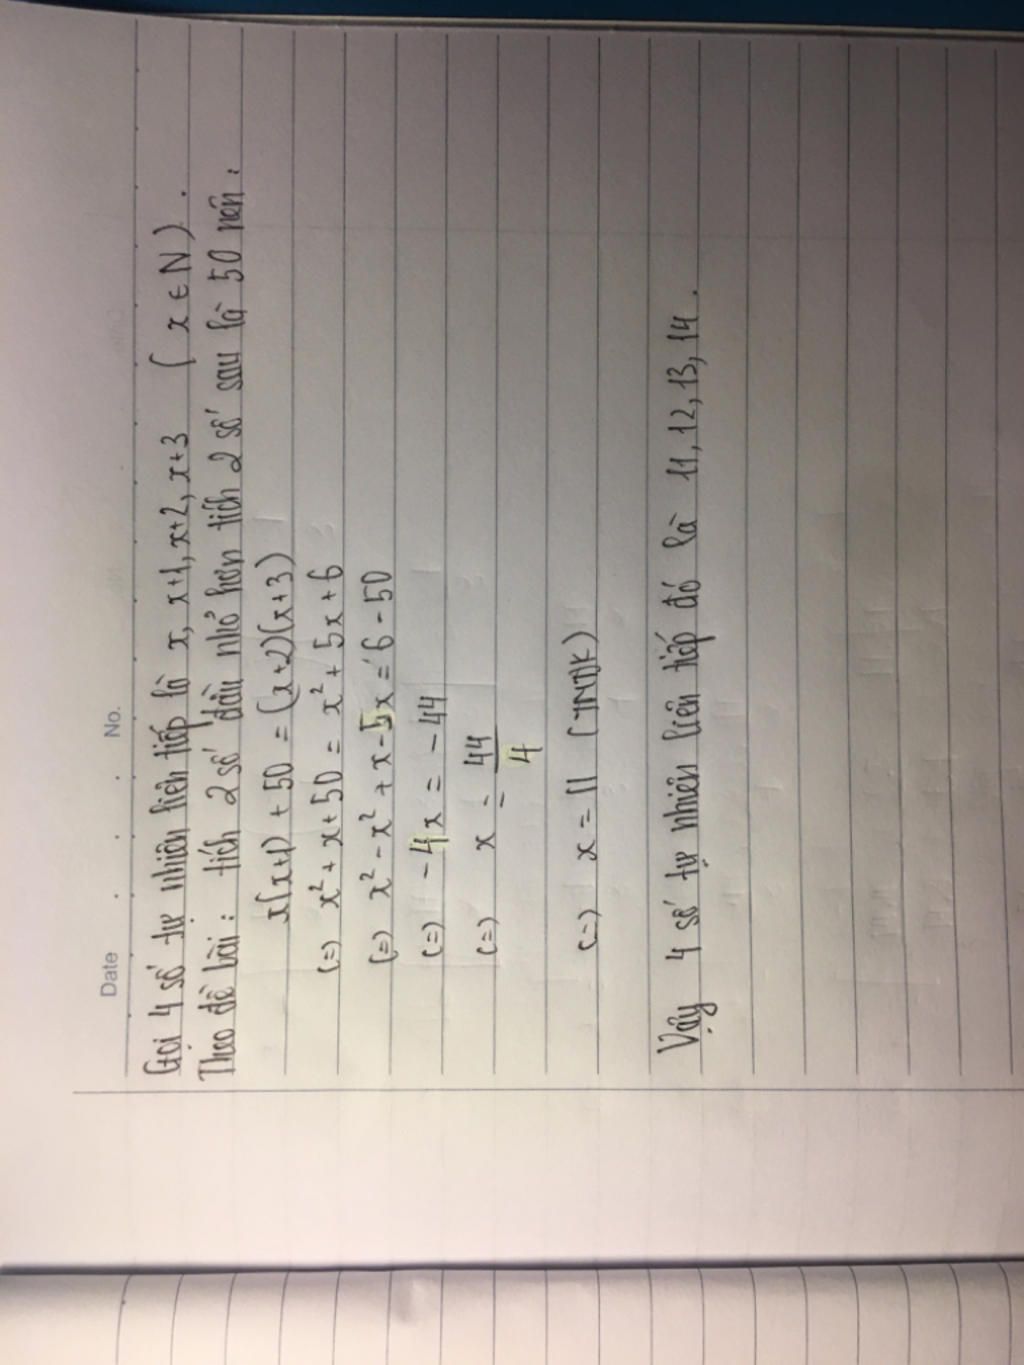 Date No.
Gọi 4 số tự nhiên liên tiếp là x, x+1, x+2, x+3 (x ∈ N).
Theo đề bài: tích 2 số đầu nhỏ hơn tích 2 số sau là 50 nên:
x(x+1) + 50 = (x+2)(x+3)
(=) x² + x + 50 = x² + 5x + 6
(=) x² - x² + x - 5x = 6 - 50
(=) -4x = -44
(=) x = 44/4
(=) x = 11 (TMĐK)
Vậy 4 số tự nhiên liên tiếp đó là 11, 12, 13, 14.